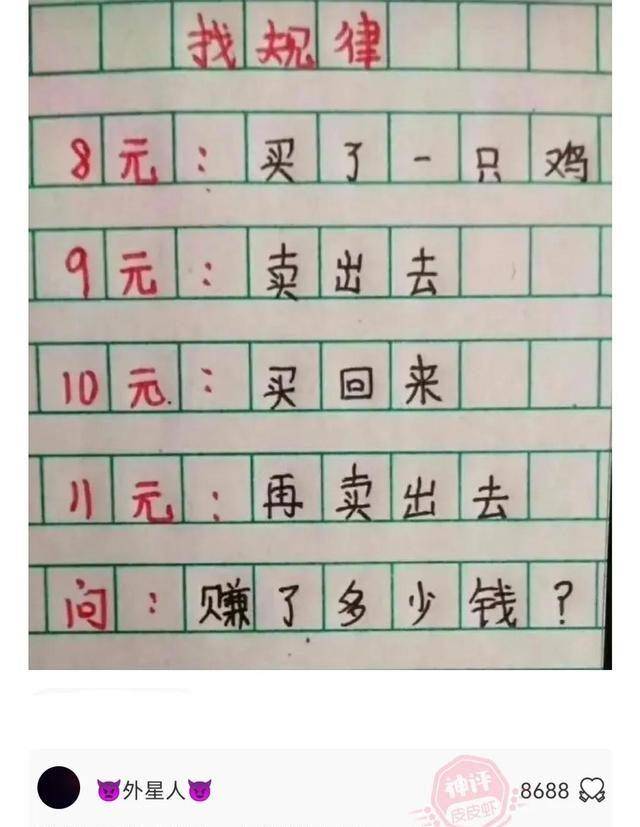 找规律
8元：买了一只鸡
9元：卖出去
10元：买回来
11元：再卖出去
问：赚了多少钱？
😈外星人😈
神评
皮皮虾
8688